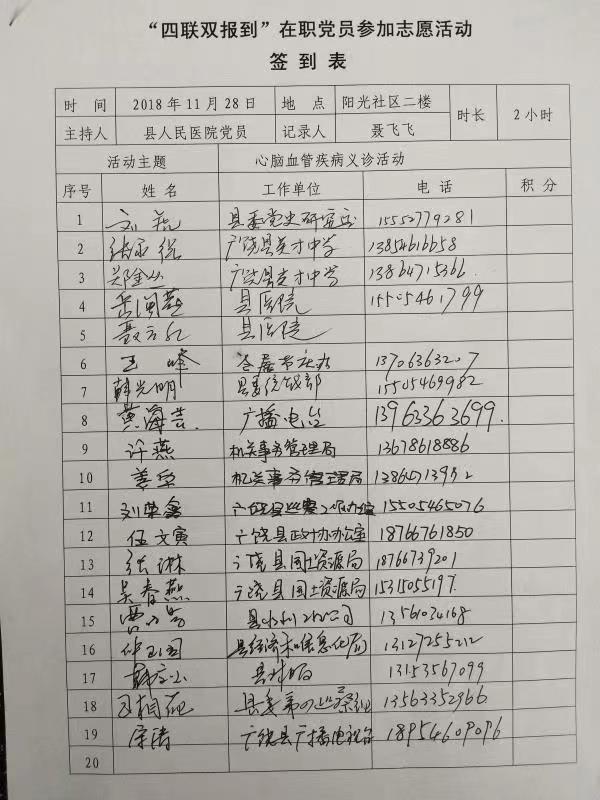 “四联双报到”在职党员参加志愿活动
签 到 表
时 间 2018 年 11 月 28 日 地 点 阳光社区二楼 时长 2 小时
主持人 县人民医院党员 记录人 聂飞飞
活动主题 心脑血管疾病义诊活动
序号 姓 名 工作单位 电 话 积 分
1 刘 县委党史研究室 15552779281
2 广饶县英才中学 13854616658
3 郑金 广饶县英才中学 13864715366
4 岳闽燕 县医院 15505461799
5 聂 县医院
6 王峰 13706363207
7 韩光明 县委统战部 15505469982
8 黄海芸 广播电台 13963363699
9 许燕 机关事务管理局 13678618886
10 姜 机关事务管理局
11 刘荣鑫 15505465076
12 伍文寅 广饶县政府办公室 18766761850
13 张琳 广饶县国土资源局 18766739201
14 吴春燕 广饶县国土资源局 1531505519
15 县水利 公司 13561034168
16 国 县经济和信息化局 13127255212
17 县财政局 13153567099
18 县委第四巡察组 13563352966
19 宗涛 广饶县广播电视台 18954609096
20